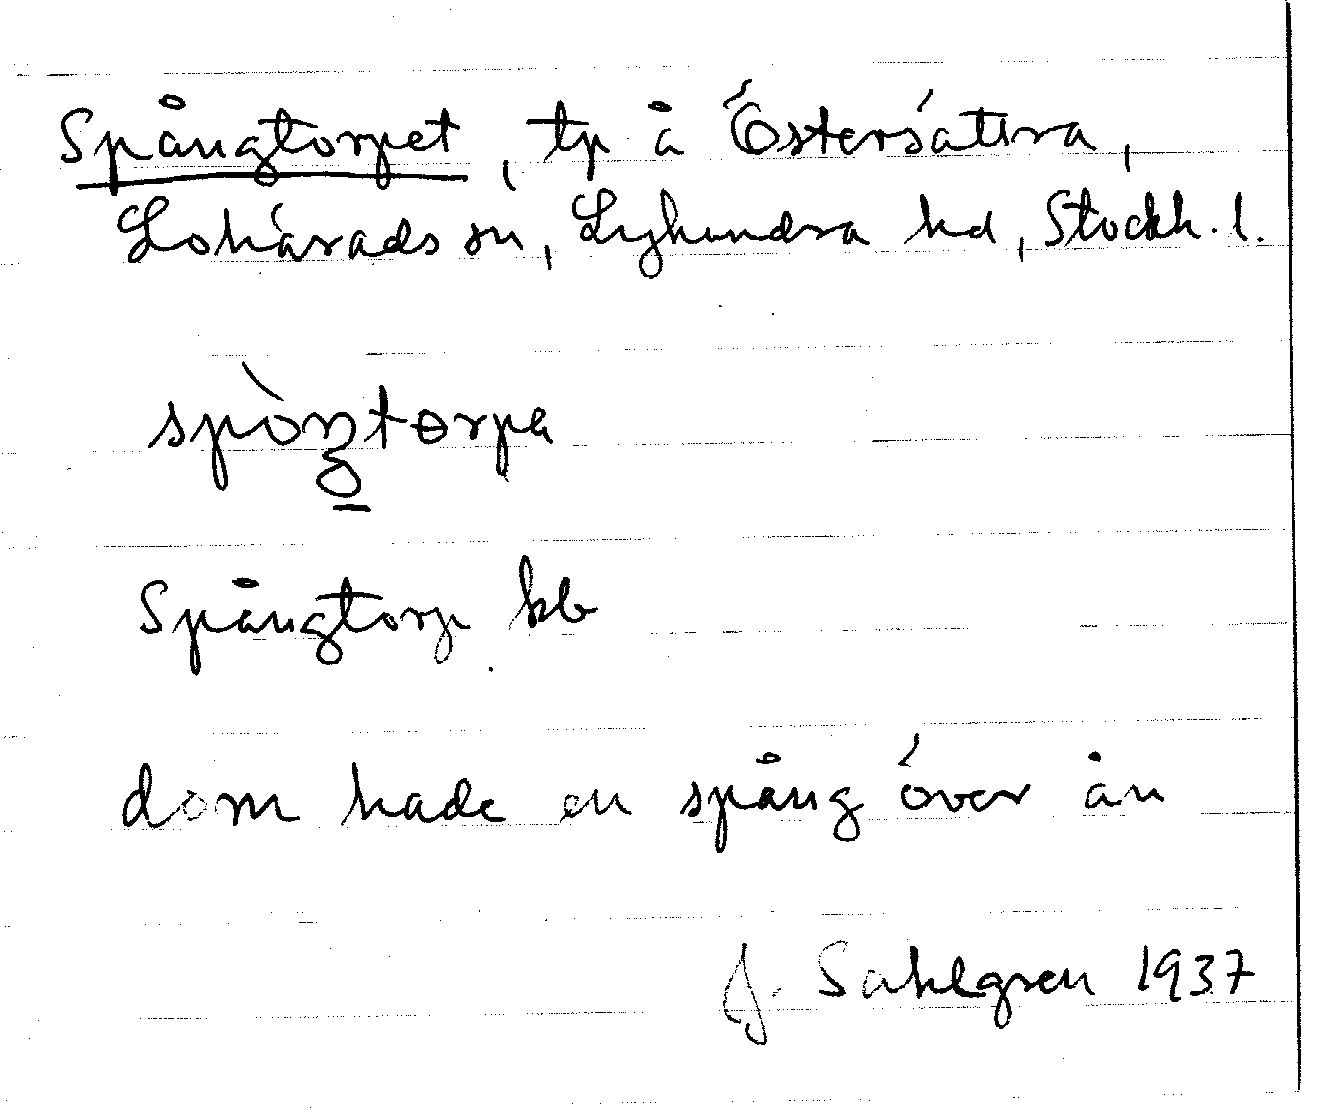 Spångtorpet, tp å Östersättra,
Lohärads sn, Lyhundra hd, Stockh. l.
spòŋtɵrpa
Spångtorp kb
dom hade en spång över ån
J. Sahlgren 1937